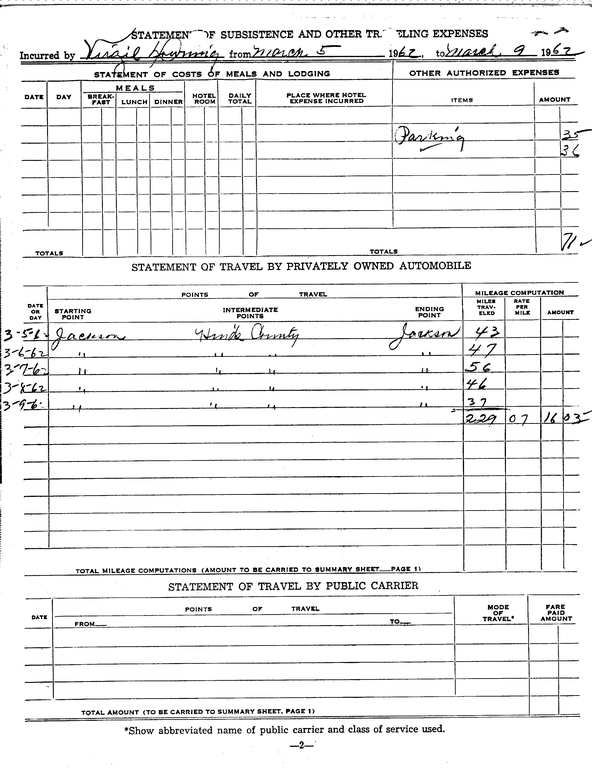 STATEMENT OF SUBSISTENCE AND OTHER TR ELING EXPENSES
Incurred by Virgil from March 5 1962, to March 9 1962
STATEMENT OF COSTS OF MEALS AND LODGING OTHER AUTHORIZED EXPENSES
DATE DAY MEALS BREAK-FAST LUNCH DINNER HOTEL ROOM DAILY TOTAL PLACE WHERE HOTEL EXPENSE INCURRED ITEMS AMOUNT
Parking 35
36
TOTALS TOTALS 71 ✓
STATEMENT OF TRAVEL BY PRIVATELY OWNED AUTOMOBILE
POINTS OF TRAVEL MILEAGE COMPUTATION
DATE OR DAY STARTING POINT INTERMEDIATE POINTS ENDING POINT MILES TRAV-ELED RATE PER MILE AMOUNT
3-5-62 Jackson Hinds County Jackson 43
3-6-62 " " " " 47
3-7-62 " " " " 56
3-8-62 " " " " 46
3-9-6 " " " " 37
229 07 16 03
TOTAL MILEAGE COMPUTATIONS (AMOUNT TO BE CARRIED TO SUMMARY SHEET PAGE 1)
STATEMENT OF TRAVEL BY PUBLIC CARRIER
DATE POINTS OF TRAVEL MODE OF TRAVEL* FARE PAID AMOUNT
FROM TO
TOTAL AMOUNT (TO BE CARRIED TO SUMMARY SHEET, PAGE 1)
*Show abbreviated name of public carrier and class of service used.
—2—